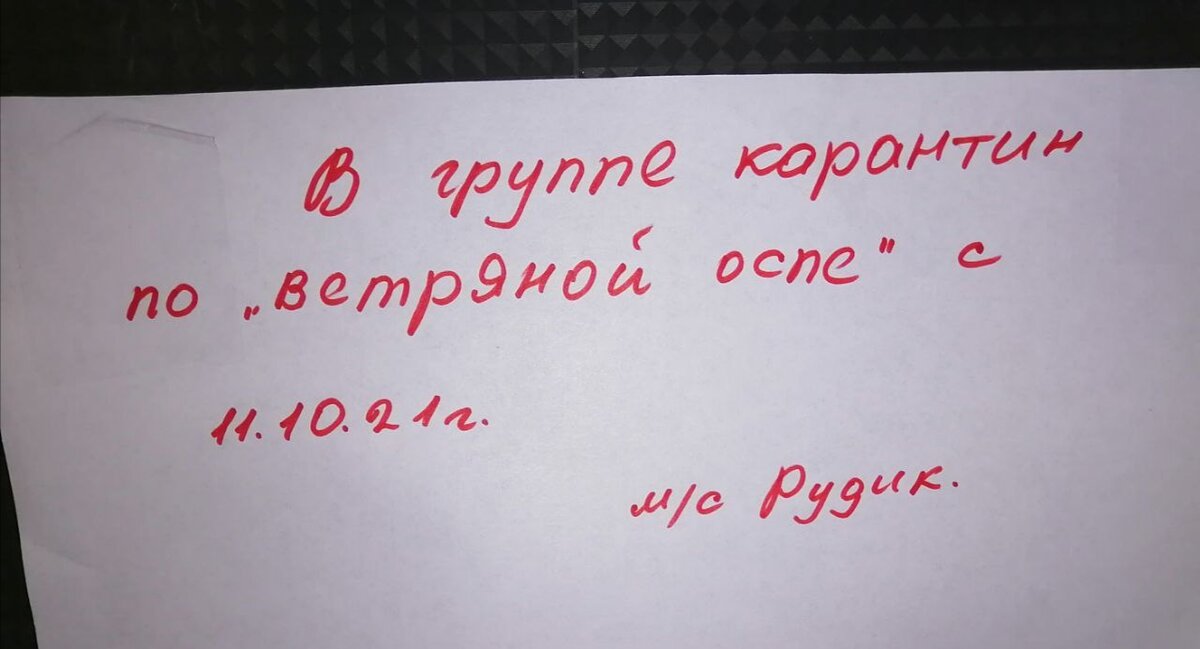 В группе карантин
по „ветряной оспе" с
11.10.21г.
м/с Рудик.